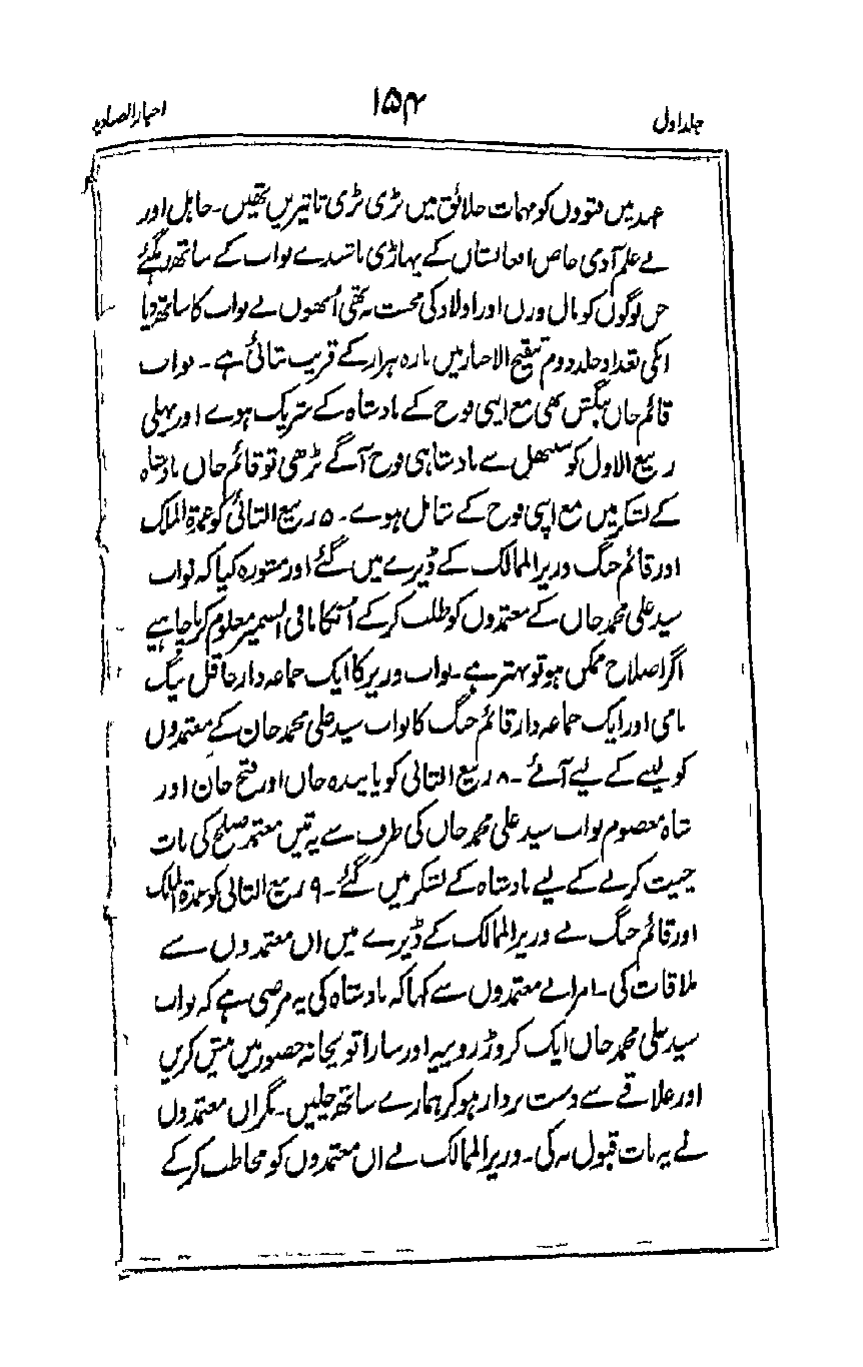 جلد اول
۱۵۴
اخبار الصنادید
عہد میں فتووں کو مہمات خلائق میں بڑی بڑی تاثیریں تھیں۔ جاہل اور
بے علم آدمی خاص افغانستان کے پہاڑی باشندے نواب کے ساتھ رہ گئے
جن لوگوں کو مال و زر اور اولاد کی محبت نہ تھی اُنھوں نے نواب کا ساتھ دیا
انکی تعداد جلد دوم تنقیح الاخبار میں بارہ ہزار کے قریب بتائی ہے۔ نواب
قائم خاں بنگش بھی مع اپنی فوج کے بادشاہ کے شریک ہوے اور پہلی
ربیع الاول کو سنبھل سے بادشاہی فوج آگے بڑھی تو قائم خاں بادشاہ
کے لشکر میں مع اپنی فوج کے شامل ہوے۔ ۵ ربیع الثانی کو عمدۃ الملک
اور قائم جنگ وزیر الممالک کے ڈیرے میں گئے اور مشورہ کیا کہ نواب
سید علی محمد خاں کے معتمدوں کو طلب کرکے اُنکا مافی الضمیر معلوم کرنا چاہیے
اگر اصلاح ممکن ہو تو بہتر ہے۔ نواب وزیر کا ایک جماعہ دار عاقل بیگ
نامی اور ایک جماعہ دار قائم جنگ کا نواب سید علی محمد خان کے معتمدوں
کو لینے کے لیے آئے۔ ۸ ربیع الثانی کو پایندہ خاں اور فتح خان اور
شاہ معصوم نواب سید علی محمد خاں کی طرف سے یہ تین معتمد صلح کی بات
چیت کرنے کے لیے بادشاہ کے لشکر میں گئے۔ ۹ ربیع الثانی کو عمدۃ الملک
اور قائم جنگ نے وزیر الممالک کے ڈیرے میں ان معتمدوں سے
ملاقات کی۔ امرا نے معتمدوں سے کہا کہ بادشاہ کی یہ مرضی ہے کہ نواب
سید علی محمد خاں ایک کروڑ روپیہ اور سارا توپخانہ حضور میں پیش کریں
اور علاقے سے دست بردار ہو کر ہمارے ساتھ چلیں۔ مگر ان معتمدوں
نے یہ بات قبول نہ کی۔ وزیر الممالک نے ان معتمدوں کو مخاطب کرکے